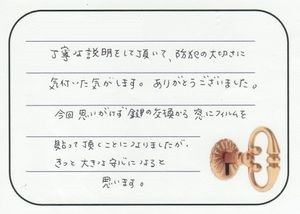 丁寧な説明をして頂いて、防犯の大切さに
気付いた気がします。ありがとうございました。
今回思いがけず鍵の交換から窓にフィルムを
貼って頂くことになりましたが、
きっと大きな安心になると
思います。